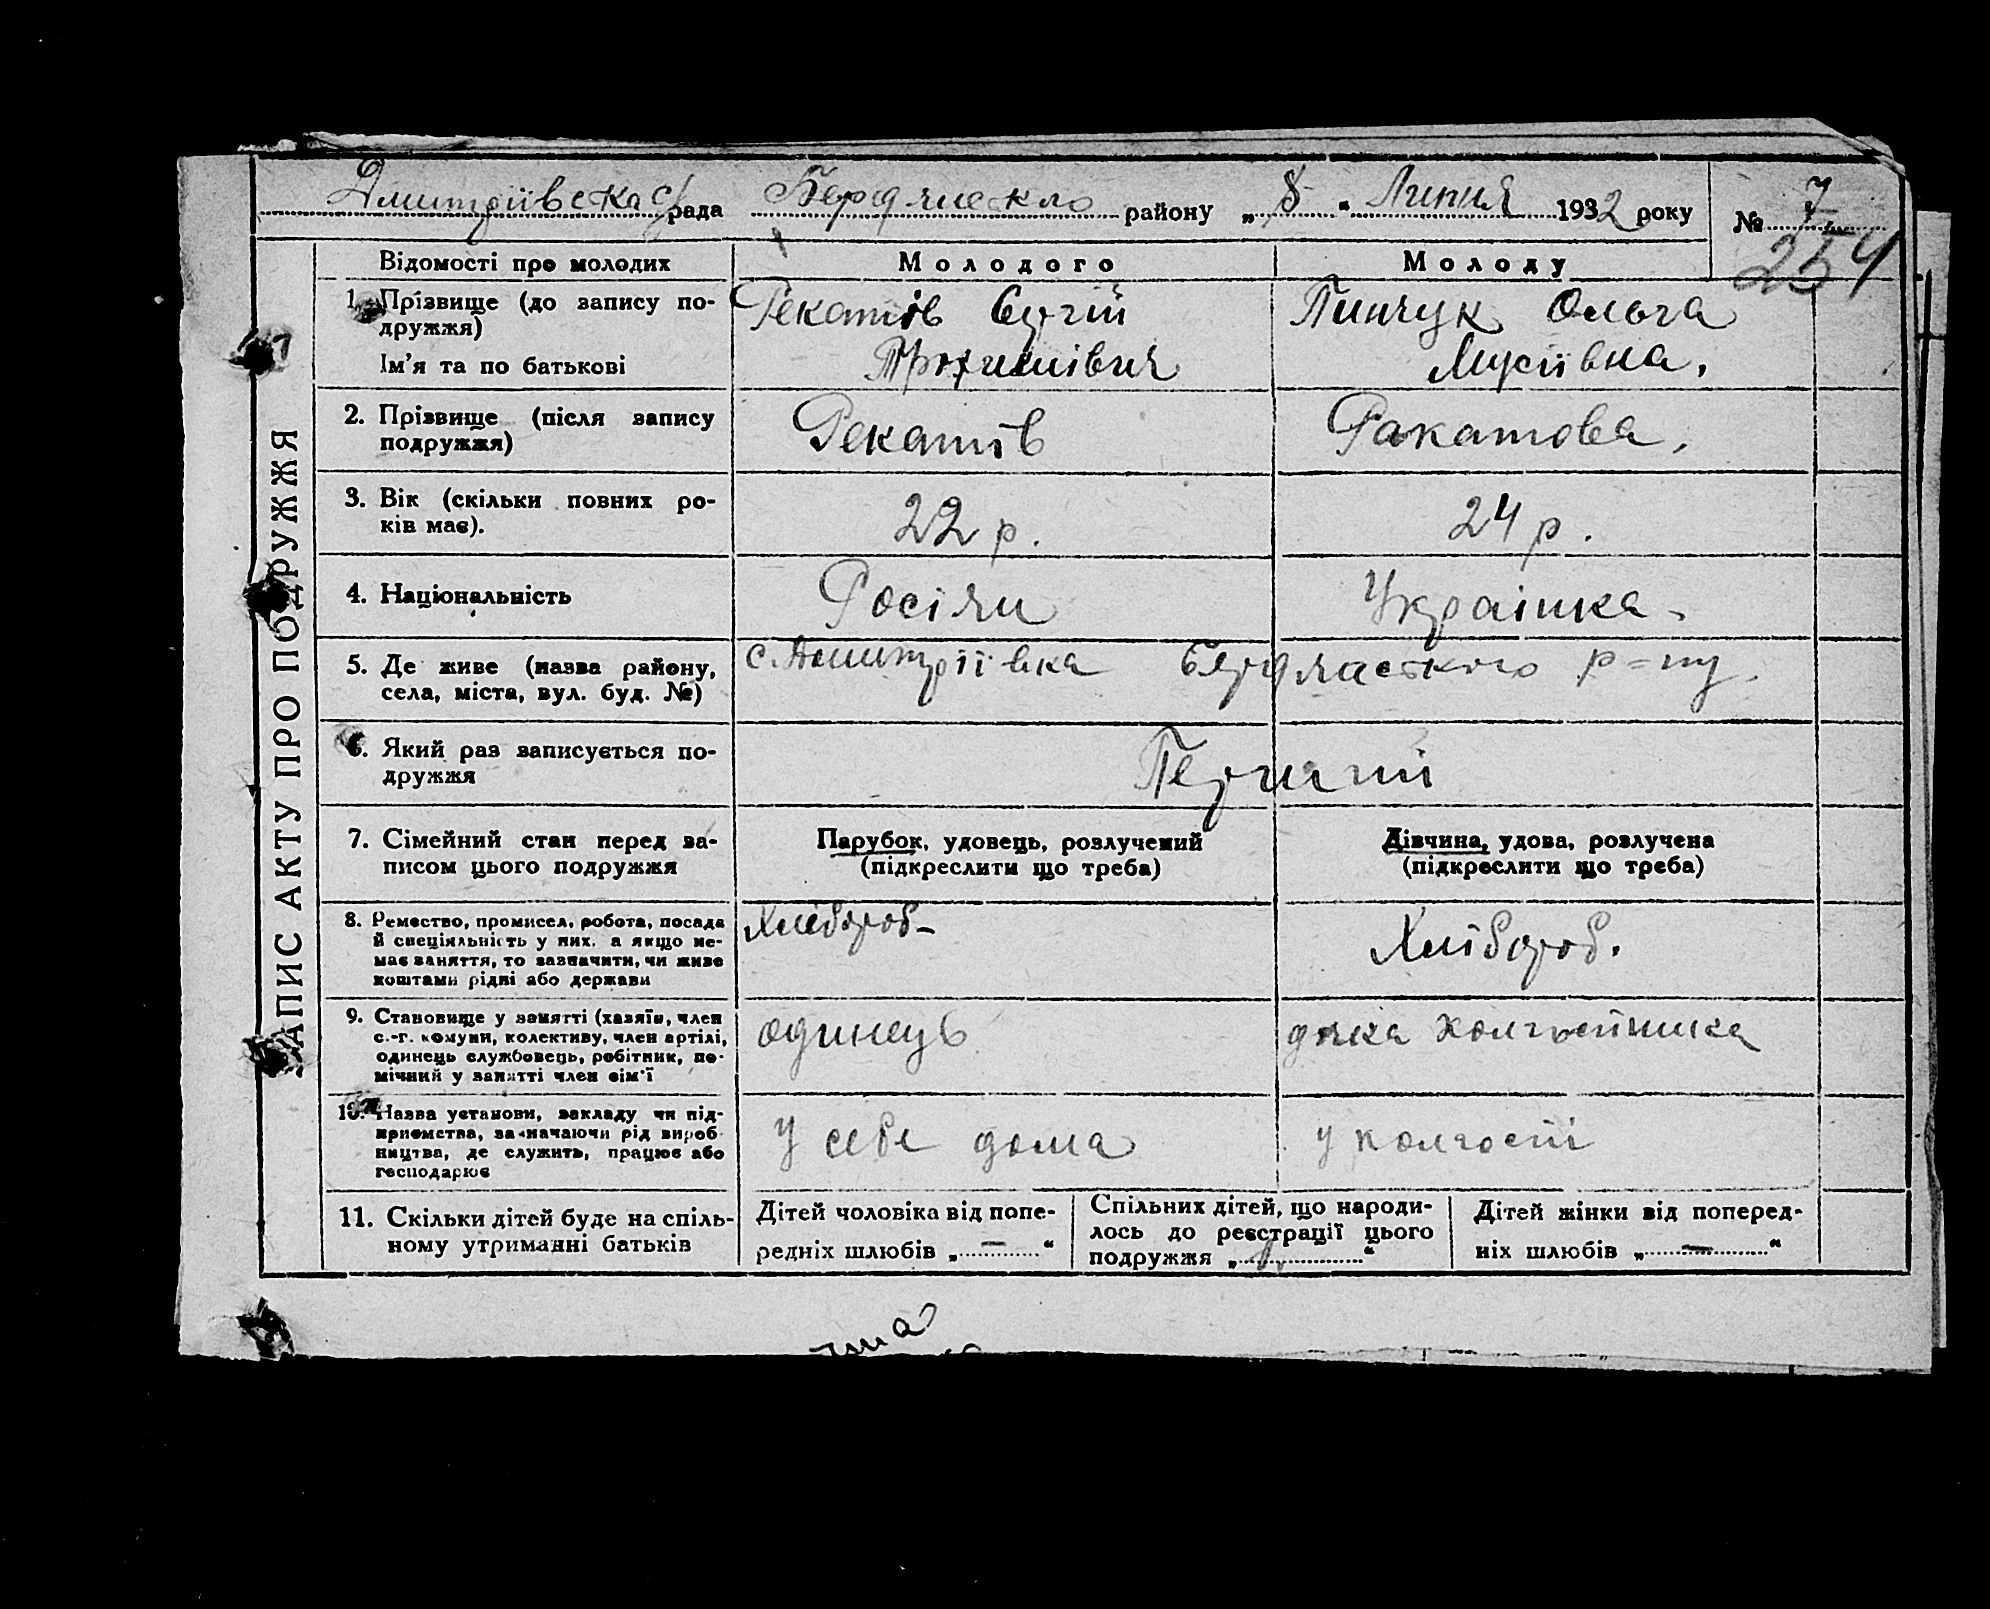 Дмитріївська с/рада Бердянського району „8“ Липня 1932 року № 7
254
ЗАПИС АКТУ ПРО ПОДРУЖЖЯ
Відомості про молодих Молодого Молоду
1. Прізвище (до запису по-
дружжя)
Ім'я та по батькові
Рекатів Сергій
Трохимівич
Пинчук Ольга
Мусіївна.
2. Прізвище (після запису
подружжя)
Рекатів
Ракатова.
3. Вік (скільки повних ро-
ків має).
22 р.
24 р.
4. Національність
Росіян
Украінка.
5. Де живе (назва району,
села, міста, вул. буд. №)
с. Дмитріївка Бердянського р=ну.
6. Який раз записується по-
дружжя
Перший
7. Сімейний стан перед за-
писом цього подружжя
Парубок, удовець, розлучений
(підкреслити що треба)
Дівчина, удова, розлучена
(підкреслити що треба)
8. Ремество, промисел, робота, посада
й спеціяльність у них, а якщо не-
має заняття, то зазначити, чи живе
коштами рідні або держави
Хлібороб-
Хлібороб.
9. Становище у занятті (хазяїн, член
с.-г. комуни, колективу, член артілі,
одинець службовець, робітник, по-
мічний у занятті член сім'ї
одинець
дочка колгоспника
10. Назва установи, закладу чи під-
приємства, зазначаючи рід вироб-
ництва, де служить, працює або
господарює
У себе дома
у колгоспі
11. Скільки дітей буде на спіль-
ному утриманні батьків
Дітей чоловіка від попе-
редніх шлюбів „—“
Спільних дітей, що народи-
лось до реєстрації цього
подружжя „
“
Дітей жінки від поперед-
ніх шлюбів „—“